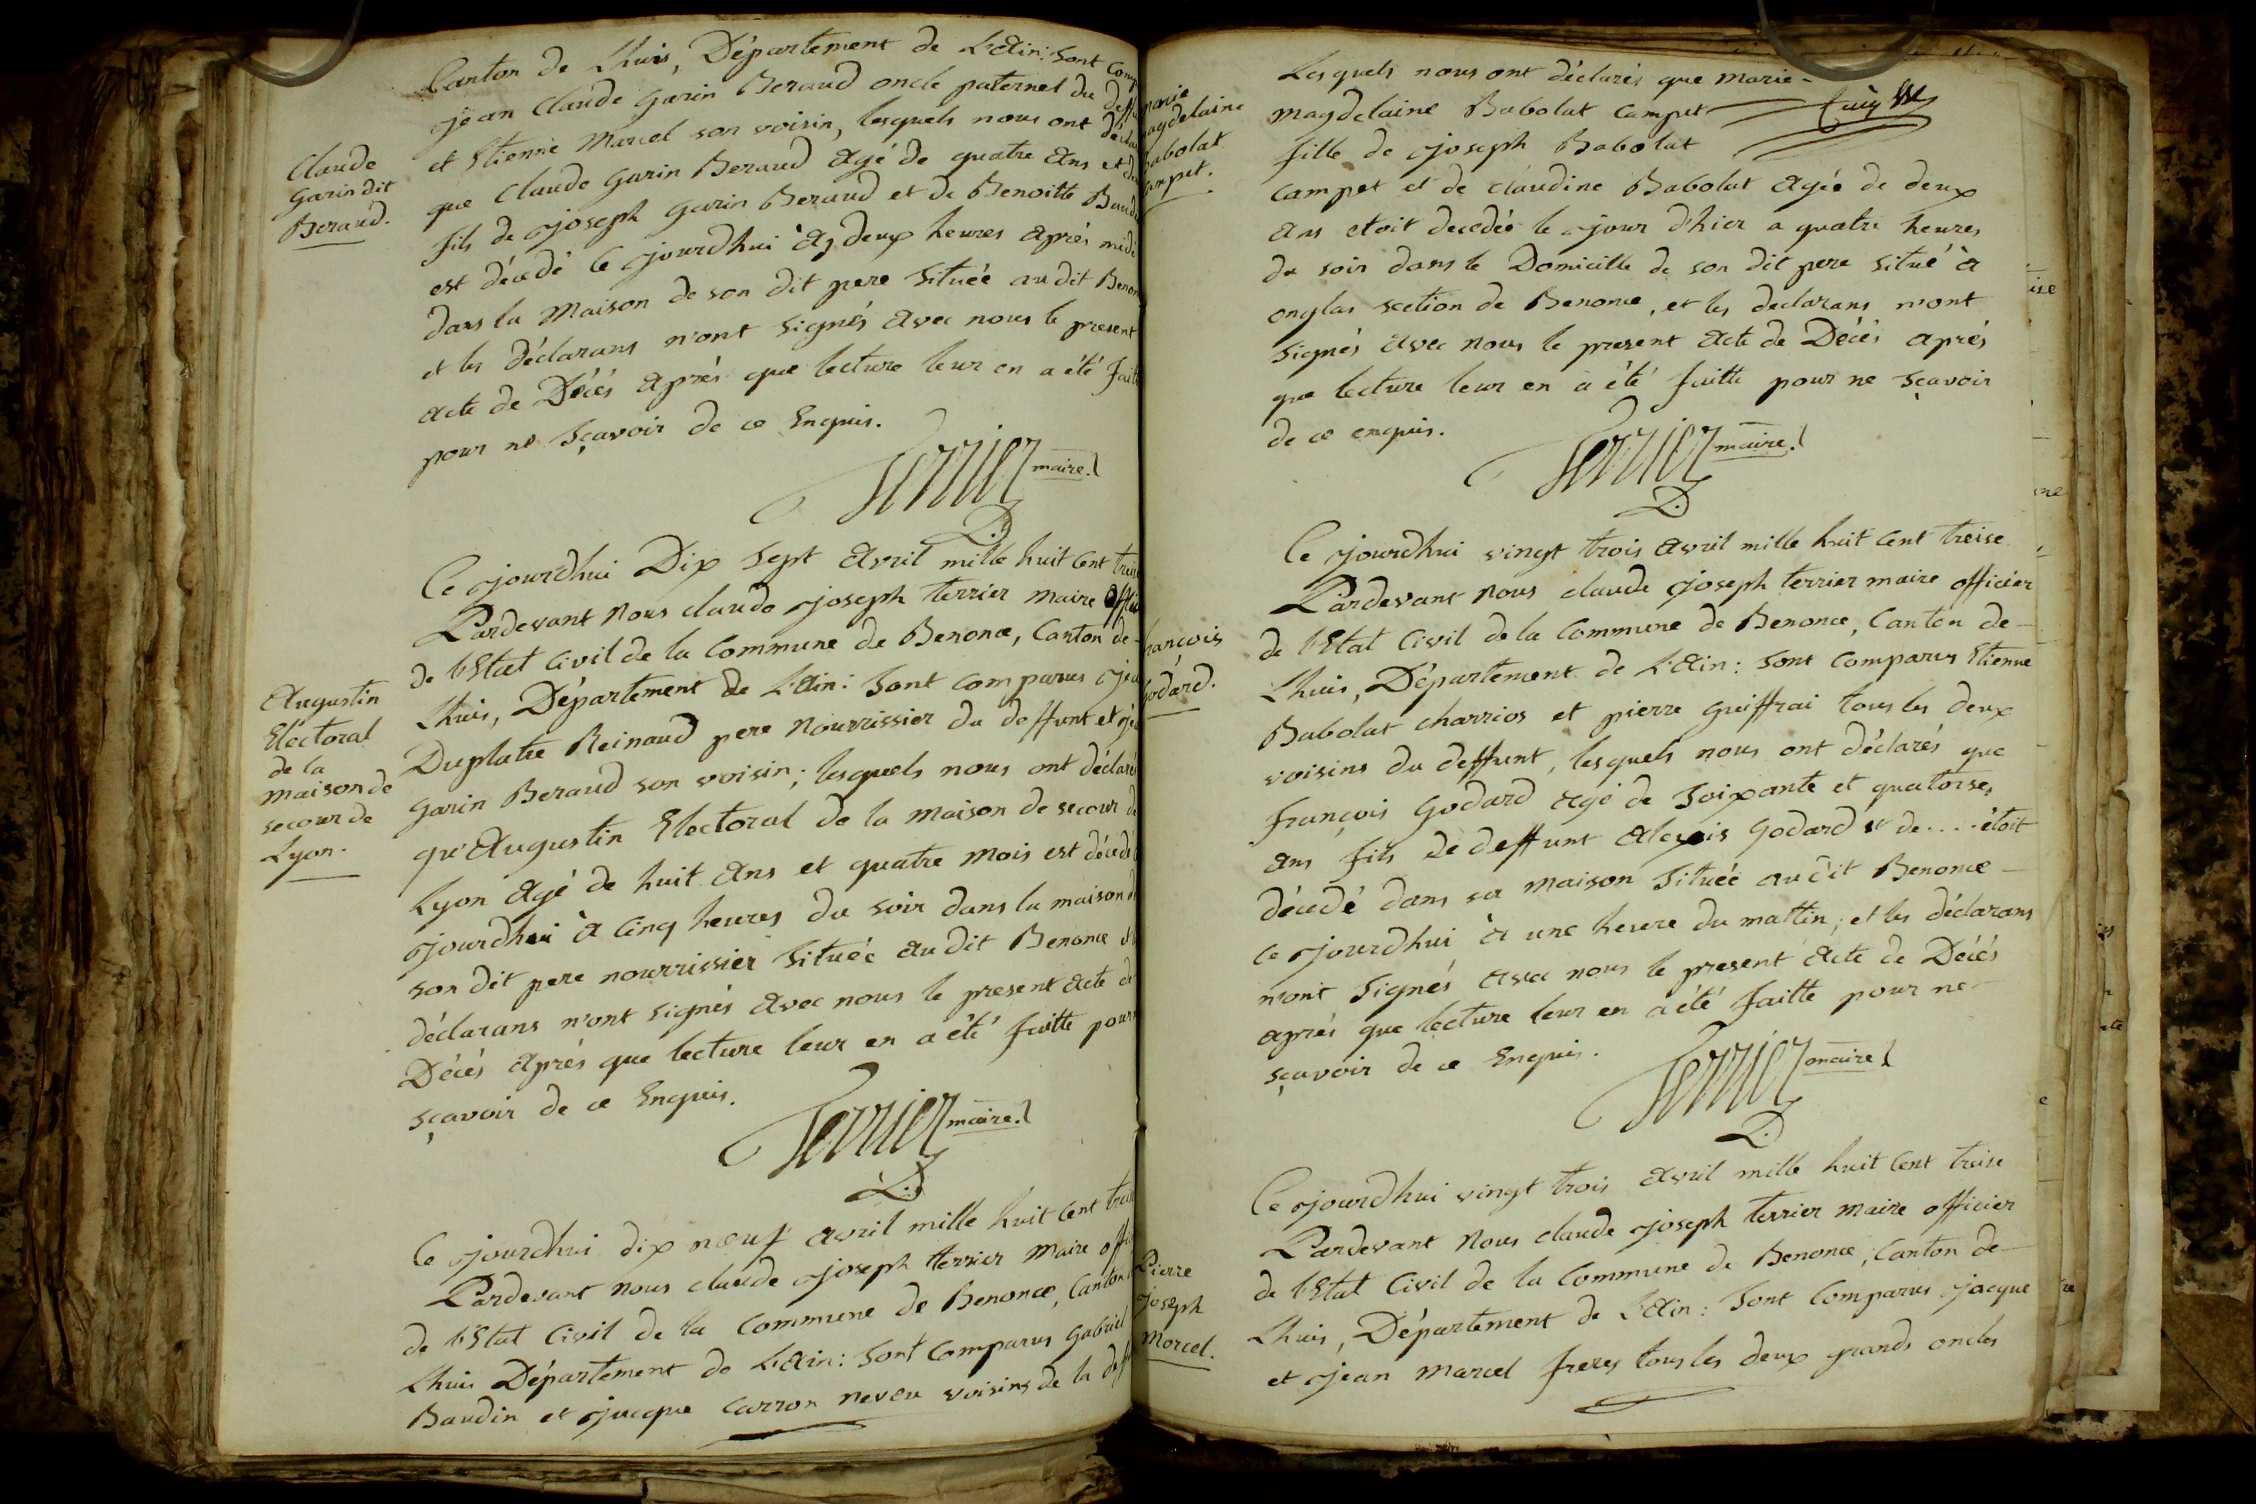 Canton de Lhuis, Département de L'Ain: sont comp
jean Claude Garin Beraud oncle paternel du deff
et Etienne Marcel son voisin, lesquels nous ont décla
Claude
Garin dit
Beraud.
que Claude Garin Beraud Agé de quatre Ans et de
fils de joseph Garin Beraud et de Benoitte Baud
est décedé ce jourdhui à deux heures Aprés midi
dans la Maison de son dit pere Située au dit Benon
et les déclarans n'ont Signés Avec nous le present
Acte de Décés Aprés que lecture leur en a été faite
pour ne Sçavoir de ce Enquis.
Terrier maire.
Ce jourdhui Dix Sept Avril mille huit Cent treise
Pardevant Nous claude joseph terrier maire offici
de l'Etat Civil de la Commune de Benonce, Canton de
Augustin
Electoral
de la
maison de
secour de
Lyon.
Lhuis, Département de L'Ain: Sont Comparus jea
Duplatre Reinaud pere Nourrissier du deffunt et je
Garin Beraud son voisin; lesquels nous ont déclarés
qu'Augustin Electoral de la Maison de secour de
Lyon Agé de huit Ans et quatre mois est décedé
jourdhui à Cinq heures du Soir dans la maison de
son dit pere nourrissier Située au dit Benonce
déclarans n'ont signés Avec nous le present Acte de
Décés Aprés que lecture leur en a été faitte pour
sçavoir de ce Enquis.
Terrier maire.
Ce jourdhui dix neuf Avril mille huit Cent treise
Pardevant nous claude joseph terrier Maire offi
de l'Etat Civil de la Commune de Benonce, Canton
Lhuis Département de L'Ain: Sont Comparus Gabriel
Baudin et jacque Carron neveu voisins de la deff
marie
magdelaine
Babolat
Campet.
Lesquels nous ont déclarés que Marie
Magdelaine Babolat Campet
fille de joseph Babolat
Campet et de Claudine Babolat Agée de deux
Ans etoit decedée le jour d'hier a quatre heures
de soir dans le Domicille de son dit pere Situé à
onglas section de Benonce, et les declarans n'ont
Signés Avec Nous le present Acte de Décés Aprés
que lecture leur en a été faitte pour ne sçavoir
de ce enquis.
Terrier maire.
Ce jourdhui vingt trois Avril mille huit Cent treise
Pardevant Nous claude joseph terrier maire officier
françois
Godard.
de l'Etat Civil de la Commune de Benonce, Canton de
Lhuis, Département de L'Ain: Sont Comparus Etienne
Babolat Charrios et pierre guiffrai tous les deux
voisins du deffunt, lesquels nous ont déclarés que
françois Godard Agé de Soixante et quatorse
Ans fils de deffunt Alexis Godard et de.... étoit
décedé dans sa maison Située au dit Benonce
ce jourdhui à une heure du mattin; et les déclarans
n'ont Signés Avec nous le present Acte de Décés
aprés que lecture leur en a été faitte pour ne
sçavoir de ce Enquis.
Terrier maire
Ce jourdhui vingt trois Avril mille huit Cent treise
Pardevant Nous claude joseph terrier Maire officier
Pierre
joseph
Marcel.
de l'Etat Civil de la Commune de Benonce, Canton de
Lhuis, Département de L'Ain: Sont Comparus jacque
et jean Marcel freres tous les deux grands oncles